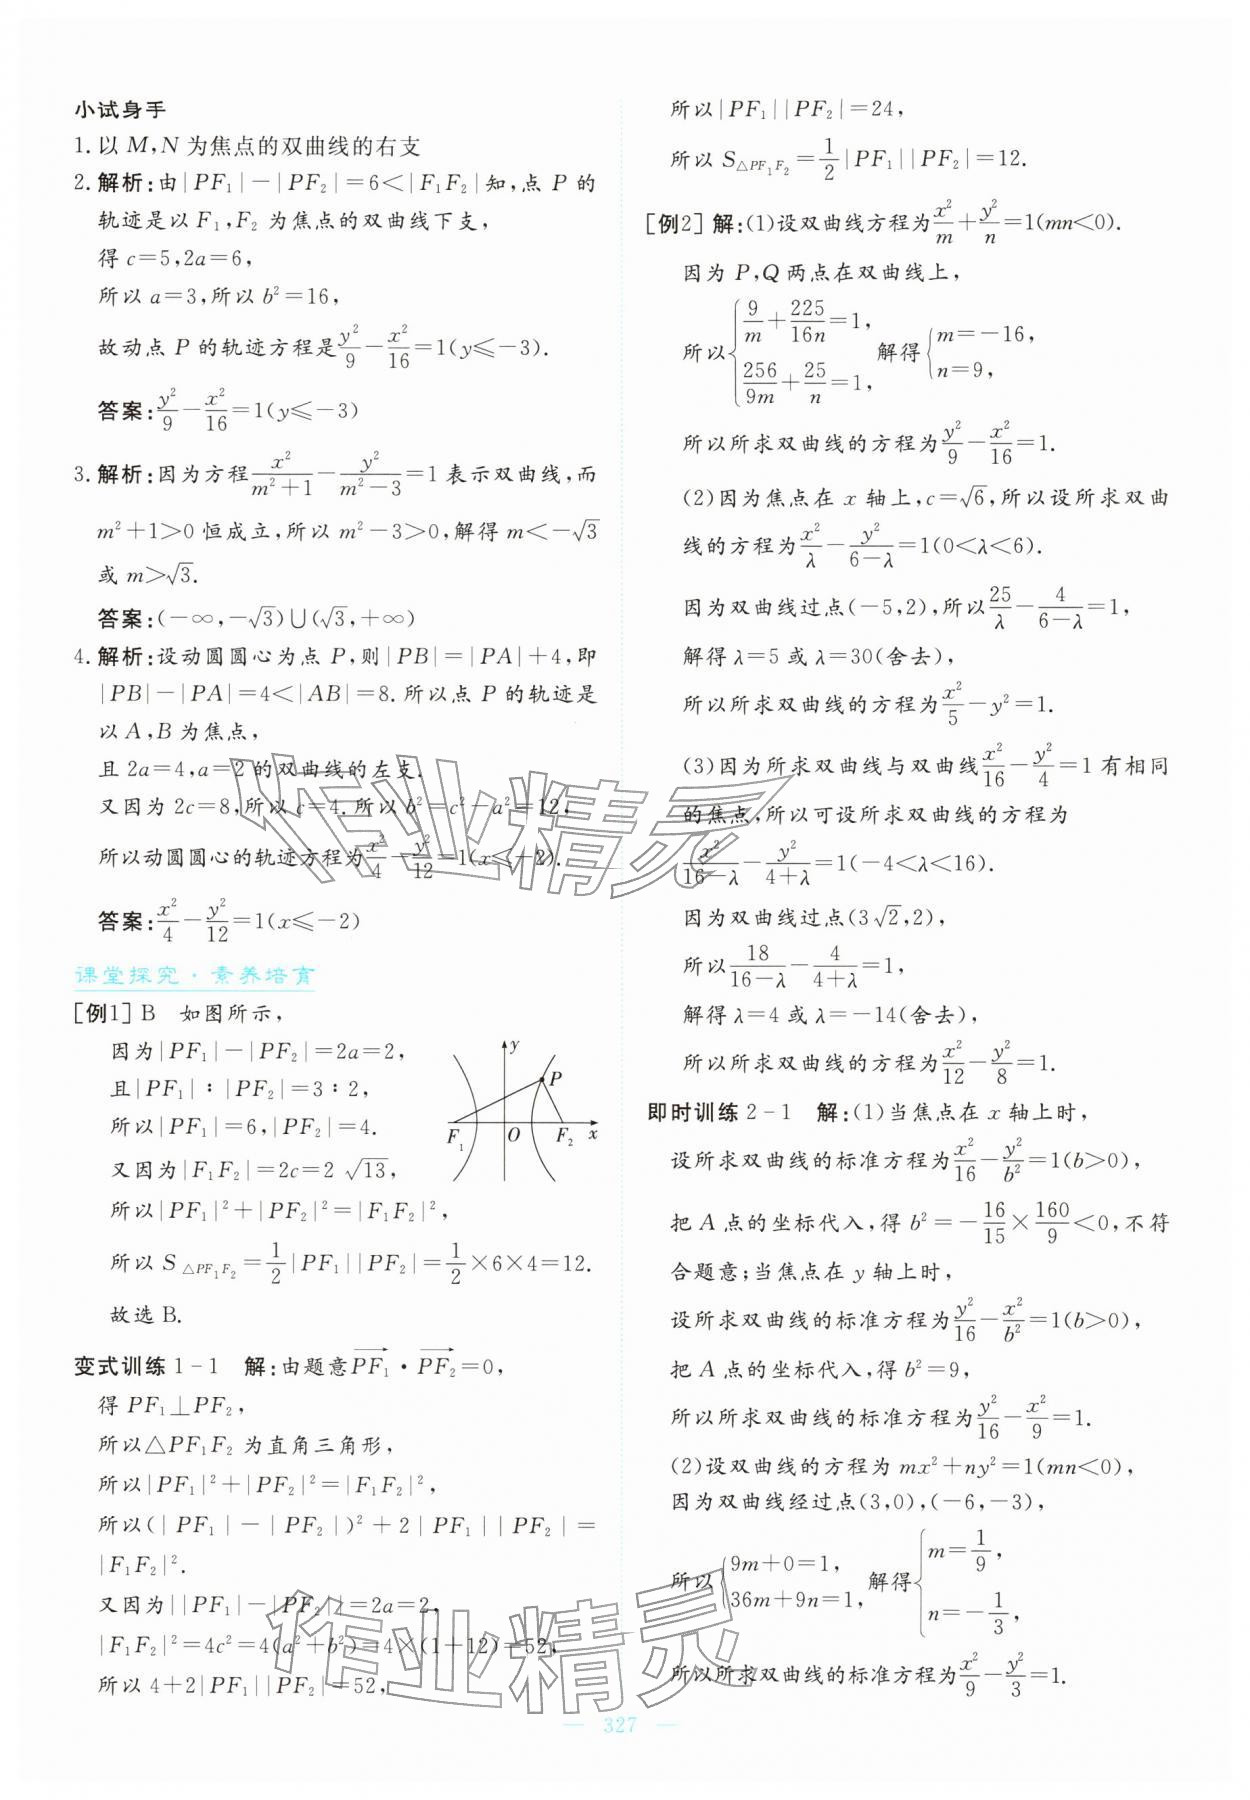 小试身手
1. 以 M,N 为焦点的双曲线的右支
2. 解析:由|PF₁|－|PF₂|＝6＜|F₁F₂|知,点 P 的
轨迹是以 F₁,F₂ 为焦点的双曲线下支,
得 c＝5,2a＝6,
所以 a＝3,所以 b²＝16,
故动点 P 的轨迹方程是y²/9－x²/16＝1(y≤－3).
答案:y²/9－x²/16＝1(y≤－3)
3. 解析:因为方程x²/(m²＋1)－y²/(m²－3)＝1 表示双曲线,而
m²＋1＞0 恒成立,所以 m²－3＞0,解得 m＜－√3
或 m＞√3.
答案:(－∞,－√3)∪(√3,＋∞)
4. 解析:设动圆圆心为点 P,则|PB|＝|PA|＋4,即
|PB|－|PA|＝4＜|AB|＝8.所以点 P 的轨迹是
以 A,B 为焦点,
且 2a＝4,a＝2 的双曲线的左支.
又因为 2c＝8,所以 c＝4.所以 b²＝c²－a²＝12,
所以动圆圆心的轨迹方程为x²/4－y²/12＝1(x≤－2).
答案:x²/4－y²/12＝1(x≤－2)
课堂探究·素养培育
[例1] B 如图所示,
因为|PF₁|－|PF₂|＝2a＝2,
且|PF₁|∶|PF₂|＝3∶2,
所以|PF₁|＝6,|PF₂|＝4.
又因为|F₁F₂|＝2c＝2√13,
所以|PF₁|²＋|PF₂|²＝|F₁F₂|²,
所以 S△PF₁F₂＝1/2|PF₁||PF₂|＝1/2×6×4＝12.
故选 B.
y
P
F₁ O F₂ x
变式训练 1－1 解:由题意PF₁→·PF₂→＝0,
得 PF₁⊥PF₂,
所以△PF₁F₂ 为直角三角形,
所以|PF₁|²＋|PF₂|²＝|F₁F₂|²,
所以(|PF₁|－|PF₂|)²＋2|PF₁||PF₂|＝
|F₁F₂|².
又因为||PF₁|－|PF₂||＝2a＝2,
|F₁F₂|²＝4c²＝4(a²＋b²)＝4×(1＋12)＝52,
所以 4＋2|PF₁||PF₂|＝52,
所以|PF₁||PF₂|＝24,
所以 S△PF₁F₂＝1/2|PF₁||PF₂|＝12.
[例2] 解:(1)设双曲线方程为x²/m＋y²/n＝1(mn＜0).
因为 P,Q 两点在双曲线上,
所以{9/m＋225/16n＝1, 256/9m＋25/n＝1, 解得{m＝－16, n＝9,
所以所求双曲线的方程为y²/9－x²/16＝1.
(2)因为焦点在 x 轴上,c＝√6,所以设所求双曲
线的方程为x²/λ－y²/(6－λ)＝1(0＜λ＜6).
因为双曲线过点(－5,2),所以25/λ－4/(6－λ)＝1,
解得λ＝5 或λ＝30(舍去),
所以所求双曲线的方程为x²/5－y²＝1.
(3)因为所求双曲线与双曲线x²/16－y²/4＝1 有相同
的焦点,所以可设所求双曲线的方程为
x²/(16－λ)－y²/(4＋λ)＝1(－4＜λ＜16).
因为双曲线过点(3√2,2),
所以18/(16－λ)－4/(4＋λ)＝1,
解得λ＝4 或λ＝－14(舍去),
所以所求双曲线的方程为x²/12－y²/8＝1.
即时训练 2－1 解:(1)当焦点在 x 轴上时,
设所求双曲线的标准方程为x²/16－y²/b²＝1(b＞0),
把 A 点的坐标代入,得 b²＝－16/15×160/9＜0,不符
合题意;当焦点在 y 轴上时,
设所求双曲线的标准方程为y²/16－x²/b²＝1(b＞0),
把 A 点的坐标代入,得 b²＝9,
所以所求双曲线的标准方程为y²/16－x²/9＝1.
(2)设双曲线的方程为 mx²＋ny²＝1(mn＜0),
因为双曲线经过点(3,0),(－6,－3),
所以{9m＋0＝1, 36m＋9n＝1, 解得{m＝1/9, n＝－1/3,
所以所求双曲线的标准方程为x²/9－y²/3＝1.
作业精灵
作业精灵
— 327 —